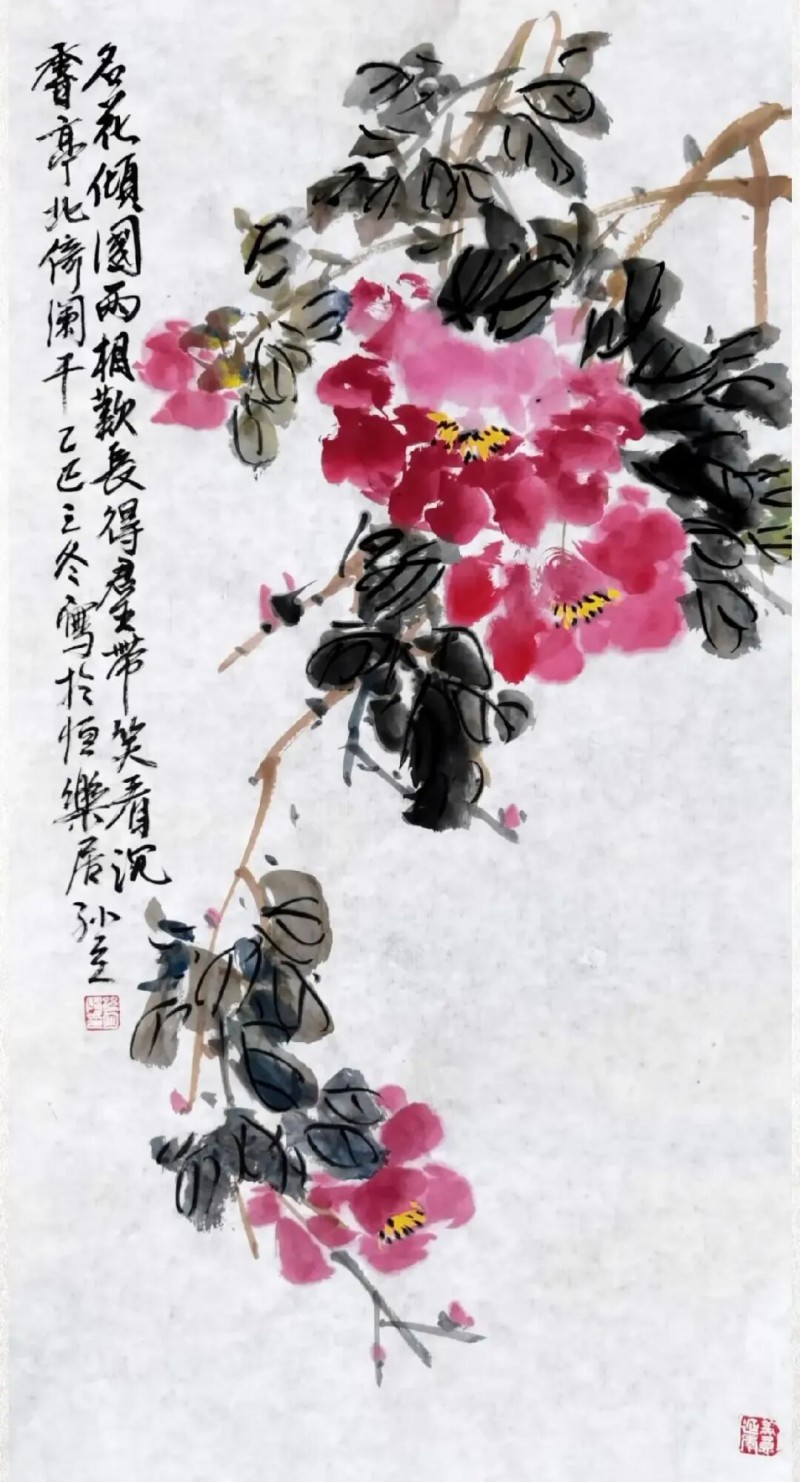 名花傾國兩相歡長得君王帶笑看沉
香亭北倚闌干乙巳之冬寫於恒樂居孙立